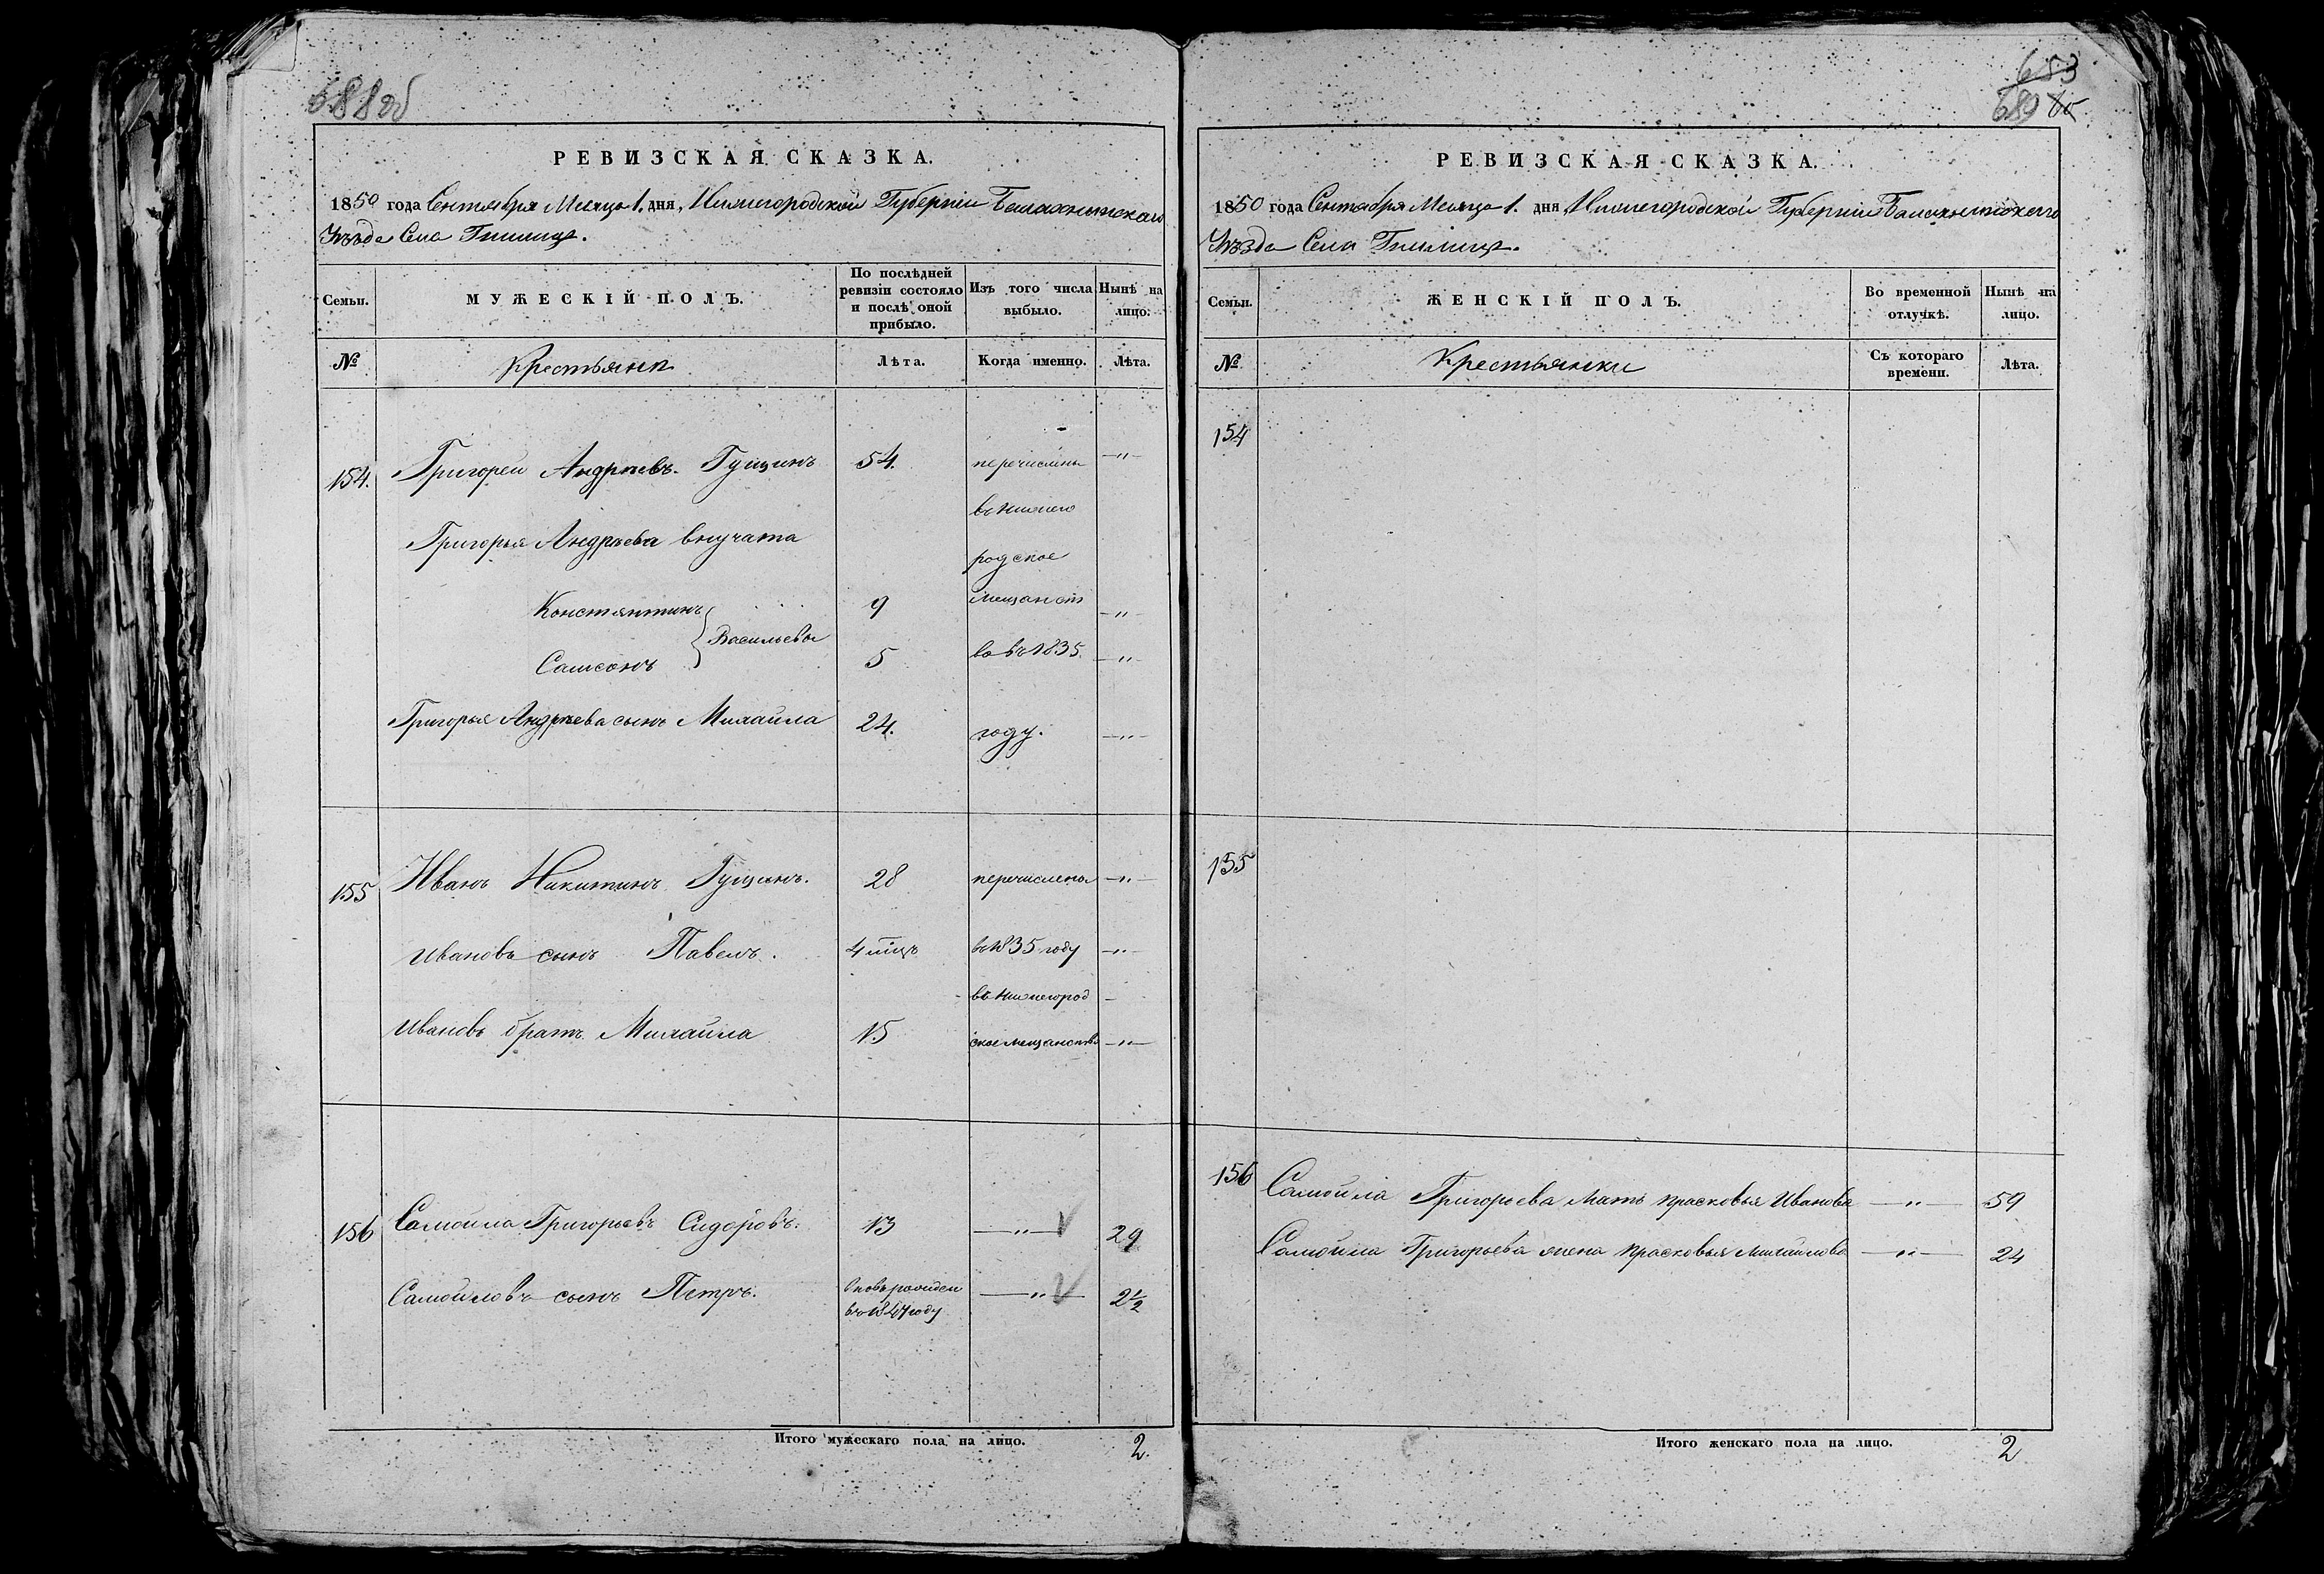 688об
РЕВИЗСКАЯ СКАЗКА.
1850 года Сентября Месяца 1. дня, Нижегородской Губерніи Балахнинскаго
Уѣзда Села Гнилицъ.
Семьи.
МУЖЕСКІЙ ПОЛЪ.
По послѣдней ревизіи состояло и послѣ оной прибыло.
Изъ того числа выбыло.
Нынѣ на лицо.
№
Крестьяне
Лѣта.
Когда именно.
Лѣта.
154. Григорей Андреевъ Гущинъ 54. перечислены —"—
въ Нижего
Григорья Андреева внучата
родское
Константинъ 9 мещанст —"—
Васильевы
Самсонъ 5 во въ 1835 —"—
Григорья Андреева сынъ Михайла 24. году. —"—
155 Иванъ Никитинъ Гущинъ. 28 перечислены —"—
Ивановъ сынъ Павелъ. 4 мцъ въ 1835 году —"—
въ Нижегород —
Ивановъ братъ Михайла 15 ское мещанство —"—
156 Самойла Григорьевъ Сидоровъ. 13 —"— 29
Самойловъ сынъ Петръ. вновь рожден —"— 2½
въ 1847 году
Итого мужескаго пола на лицо. 2.
653
689
РЕВИЗСКАЯ СКАЗКА.
1850 года Сентября Месяца 1. дня Нижегородской Губерніи Балахнинскаго
Уѣзда Села Гнилицъ.
Семьи.
ЖЕНСКІЙ ПОЛЪ.
Во временной отлучкѣ.
Нынѣ на лицо.
№
Крестьянки
Съ котораго времени.
Лѣта.
154
155
156 Самойла Григорьева мать Прасковья Иванова —"— 59
Самойла Григорьева жена Прасковья Михайлова —"— 24
Итого женскаго пола на лицо. 2